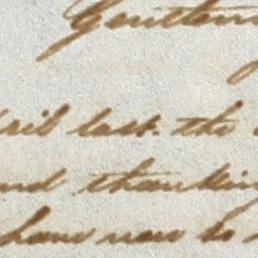 Gentlem
ril last. the
nd thanking
have now to